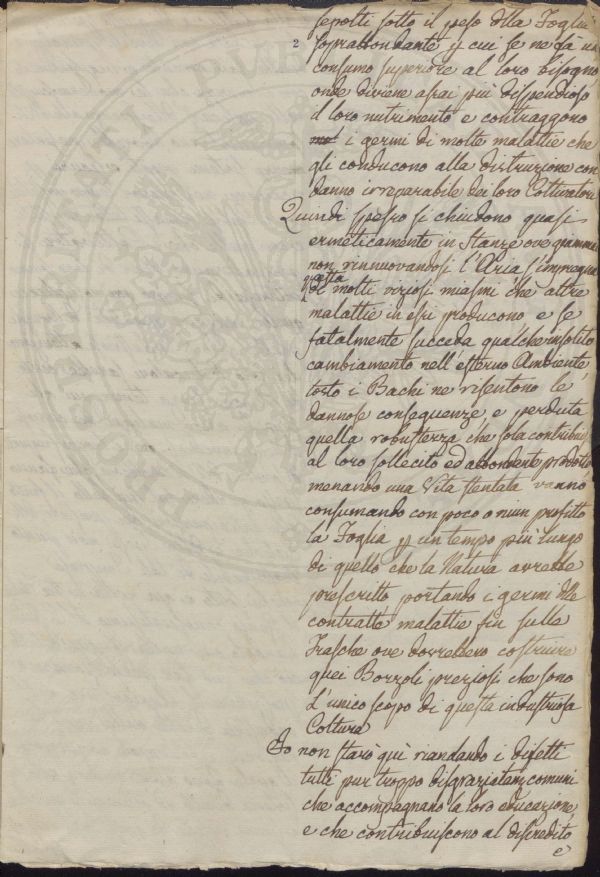 sepolti sotto il peso della Foglia
2
soprabbondante p cui se ne fà un
consumo superiore al loro bisogno
onde diviene assai più dispendioso
il loro nutrimento e contraggono
i germi di molte malattie che
gli conducono alla distruzione con
danno irreparabile dei loro Cultivatori
Quindi spesso si chiudono quasi
ermeticamente in stanze ove giammai
non rinnuovandosi l'Aria s'impregna
di molti viziosi miasmi che altre
malattie in essi producono e se
fatalmente succeda qualche insolito
cambiamento nell'esterno Ambiente
tosto i Bachi ne risentono le
dannose conseguenze, e perduta
quella robustezza che sola contribuisce
al loro sollecito ed abbondante prodotto
menando una Vita stentata vanno
consumando con poco o niun profitto
la Foglia p un tempo più lungo
di quello che la Natura avrebbe
prescritto portando i germi delle
contratte malattie fin sulle
Frasche ove dovrebbero costruire
quei Bozzoli preziosi che sono
L'unico scopo di questa industriosa
Coltura
Io non starò quì riandando i difetti
tutti pur troppo disgraziatam comuni
che accompagnano la loro educazione,
e che contribuiscono al discredito
e
PRO PUB